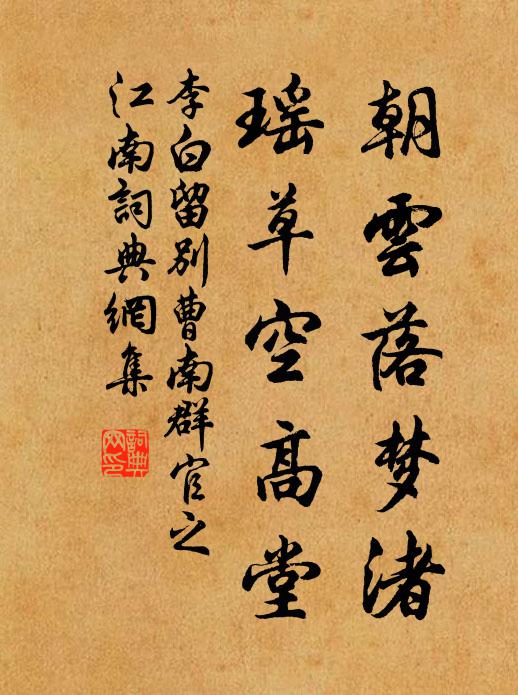 朝雲落梦渚
瑶草空高堂
李白留别曹南群官之
江南詞典網集
詞典
网印